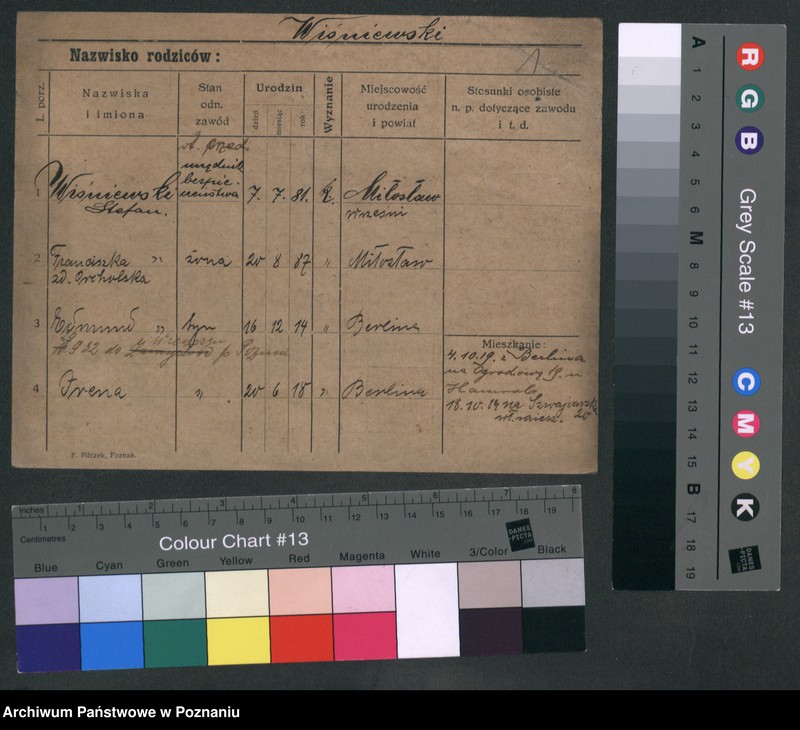 Wiśniewski
Nazwisko rodziców :
L. porz.
Nazwiska i imiona
Stan odn. zawód
Urodzin
dzień
miesiąc
rok
Wyznanie
Miejscowość urodzenia i powiat
Stosunki osobiste n. p. dotyczące zawodu i t. d.
1 Wiśniewski urzędnik 7. 7. 81. k. Miłosław
Stefan.
2 Franciszka „ żona 20 8 87 „ Miłosław
zd.
3 Edmund „ syn 16 12 14 „ Berlina
22 do p.
Mieszkanie :
4 Irena „ 20 6 18 „ Berlina
4.10.19. z Berlina
na Ogrodową 19. u
18.10.19 na Szwajcarska
20
F. Pilczek, Poznań.
A 1 2 3 4 5 6 M 8 9 10 11 12 13 14 15 B 17 18 19
R G B
Grey Scale #13
C M Y K
DANES PICTA .COM
Inches 1 2 3 4 5 6 7 8
Centimetres 1 2 3 4 5 6 7 8 9 10 11 12 13 14 15 16 17 18 19
Colour Chart #13
DANES PICTA .COM
Blue Cyan Green Yellow Red Magenta White 3/Color Black
Archiwum Państwowe w Poznaniu